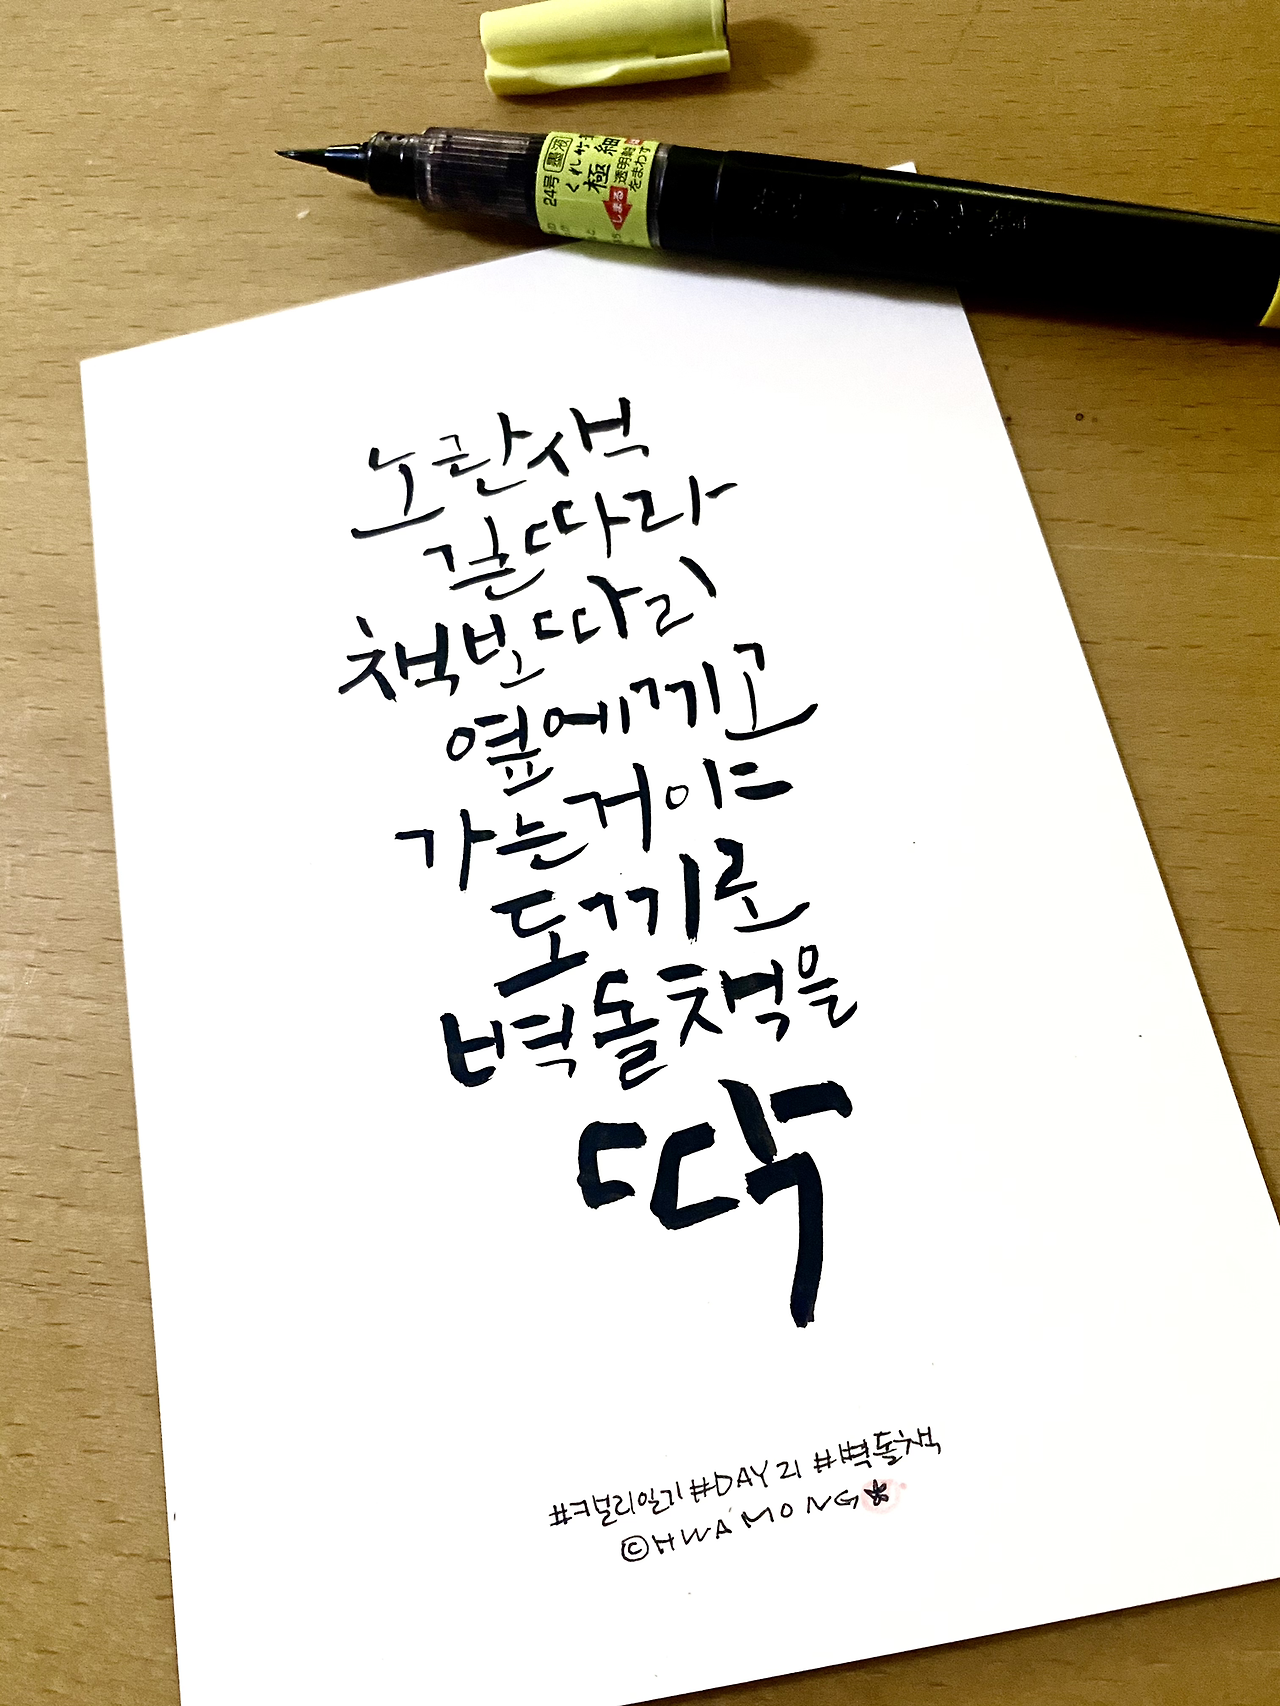 24号 墨液
くれ竹
極細
透明軸
をまわす
しまる
노란색
길따라
책보따리
옆에끼고
가는거이드
도끼로
벽돌책을
딱
#컬리일기 #DAY21 #벽돌책
©HWAMONG